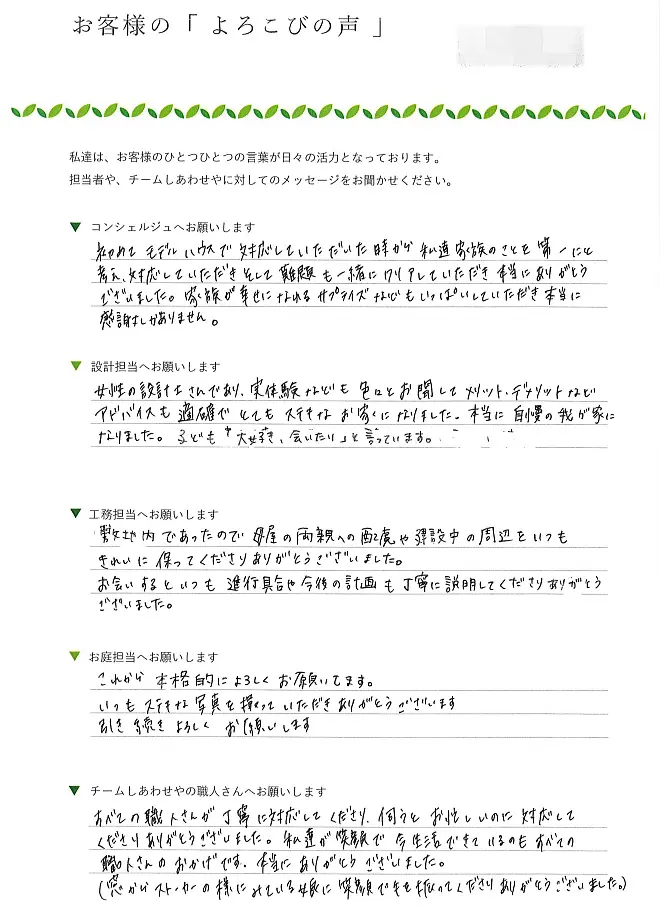 お客様の「 よろこびの声 」
私達は、お客様のひとつひとつの言葉が日々の活力となっております。
担当者や、チームしあわせやに対してのメッセージをお聞かせください。
▼ コンシェルジュへお願いします
初めて モデルハウスで 対応していただいた時から 私達家族のことを第一にと
考え、対応していただき そして 難題も一緒にクリアしていただき 本当にありがとう
ございました。家族が幸せになれるサプライズなどもいっぱいしていただき本当に
感謝しかありません。
▼ 設計担当へお願いします
女性の設計士さんであり、実体験なども色々とお聞して メリット、デメリットなど
アドバイスも適確で とてもステキなお家になりました。本当に自慢の我が家に
なりました。子ども「大好き、会いたい」と言っています。
▼ 工務担当へお願いします
敷地内であったので 母屋の両親への配慮や建設中の周辺をいつも
きれいに保ってくださりありがとうございました。
お会いするといつも 進行具合や今後の計画も丁寧に説明してくださりありがとう
ございました。
▼ お庭担当へお願いします
これから 本格的によろしくお願いします。
いつも ステキな写真を撮っていただきありがとうございます
引き続きよろしく お願いします
▼ チームしあわせやの職人さんへお願いします
すべての職人さんが丁寧に対応してくださり、何かとお忙しいのに対応して
くださりありがとうございました。私達が笑顔で今生活できているのもすべての
職人さんのおかげです。本当にありがとうございました。
(窓からストーカーの様にみている娘に笑顔で手を振ってくださりありがとうございました。)